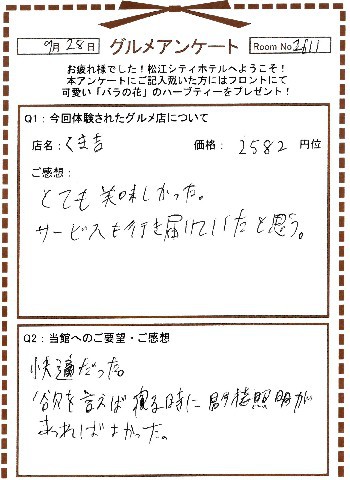 9月28日 グルメアンケート Room No 2611
お疲れ様でした！松江シティホテルへようこそ！
本アンケートにご記入戴いた方にはフロントにて
可愛い「バラの花」のハーブティーをプレゼント！
Q1：今回体験されたグルメ店について
店名：くま吉 価格：2582 円位
ご感想：
とても美味しかった。
サービスも行き届いていたと思う。
Q2：当館へのご要望・ご感想
快適だった。
欲を言えば寝る時に間接照明が
あればよかった。